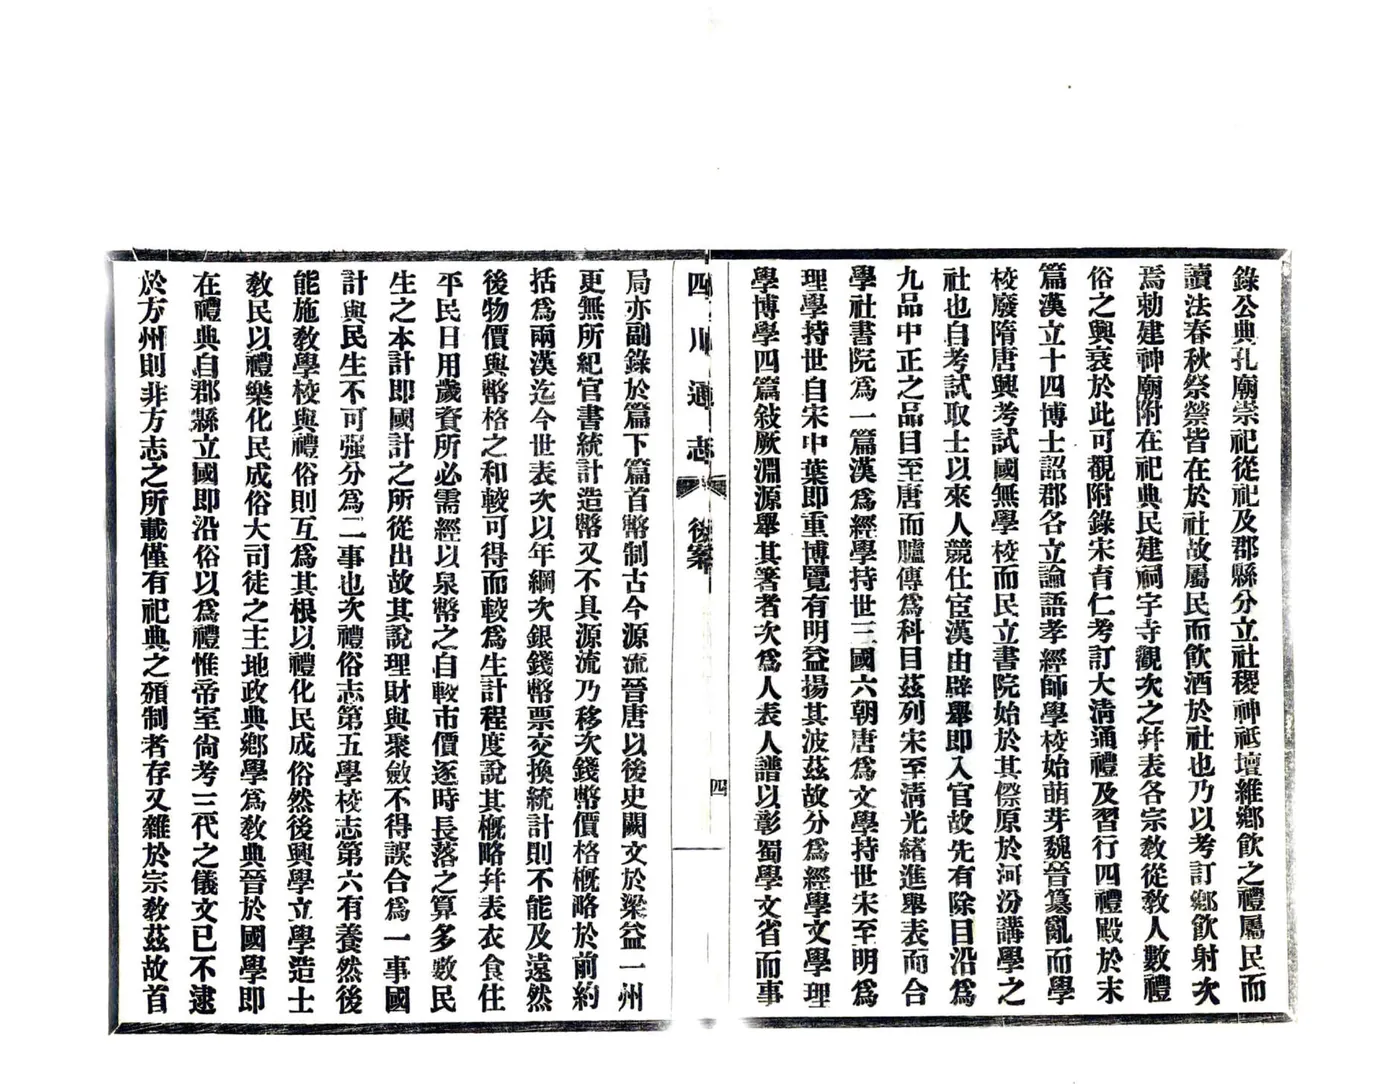 錄公典孔廟崇祀從祀及郡縣分立社稷神祗壇維鄉飲之禮屬民而
讀法春秋祭禜皆在於社故屬民而飲酒於社也乃以考訂鄉飲射次
焉勅建神廟附在祀典民建祠宇寺觀次之幷表各宗教從教人數禮
俗之興衰於此可觀附錄宋育仁考訂大清通禮及習行四禮殿於末
篇漢立十四博士詔郡各立論語孝經師學校始萌芽魏晉纂亂而學
校廢隋唐興考試國無學校而民立書院始於其傺原於河汾講學之
社也自考試取士以來人競仕宦漢由辟舉即入官故先有除目沿爲
九品中正之品目至唐而臚傳爲科目茲列宋至淸光緒進舉表而合
學社書院爲一篇漢爲經學持世三國六朝唐爲文學持世宋至明爲
理學持世自宋中葉即重博覽有明益揚其波茲故分爲經學文學理
學博學四篇敍厥淵源舉其箸者次爲人表人譜以彰蜀學文省而事
四川通志
後案
四
局亦副錄於篇下篇首幣制古今源流晉唐以後史闕文於梁益一州
更無所紀官書統計造幣又不具源流乃移次錢幣價格概略於前約
括爲兩漢迄今世表次以年綱次銀錢幣票交換統計則不能及遠然
後物價與幣格之和較可得而較爲生計程度說其概略幷表衣食住
平民日用歲資所必需經以泉幣之自較市價逐時長落之算多數民
生之本計即國計之所從出故其說理財與聚斂不得誤合爲一事國
計與民生不可强分爲二事也次禮俗志第五學校志第六有養然後
能施敎學校與禮俗則互爲其根以禮化民成俗然後興學立學造士
敎民以禮樂化民成俗大司徒之主地政典鄉學爲敎典晉於國學即
在禮典自郡縣立國即沿俗以爲禮惟帝室尙考三代之儀文已不逮
於方州則非方志之所載僅有祀典之頒制者存又雜於宗敎茲故首